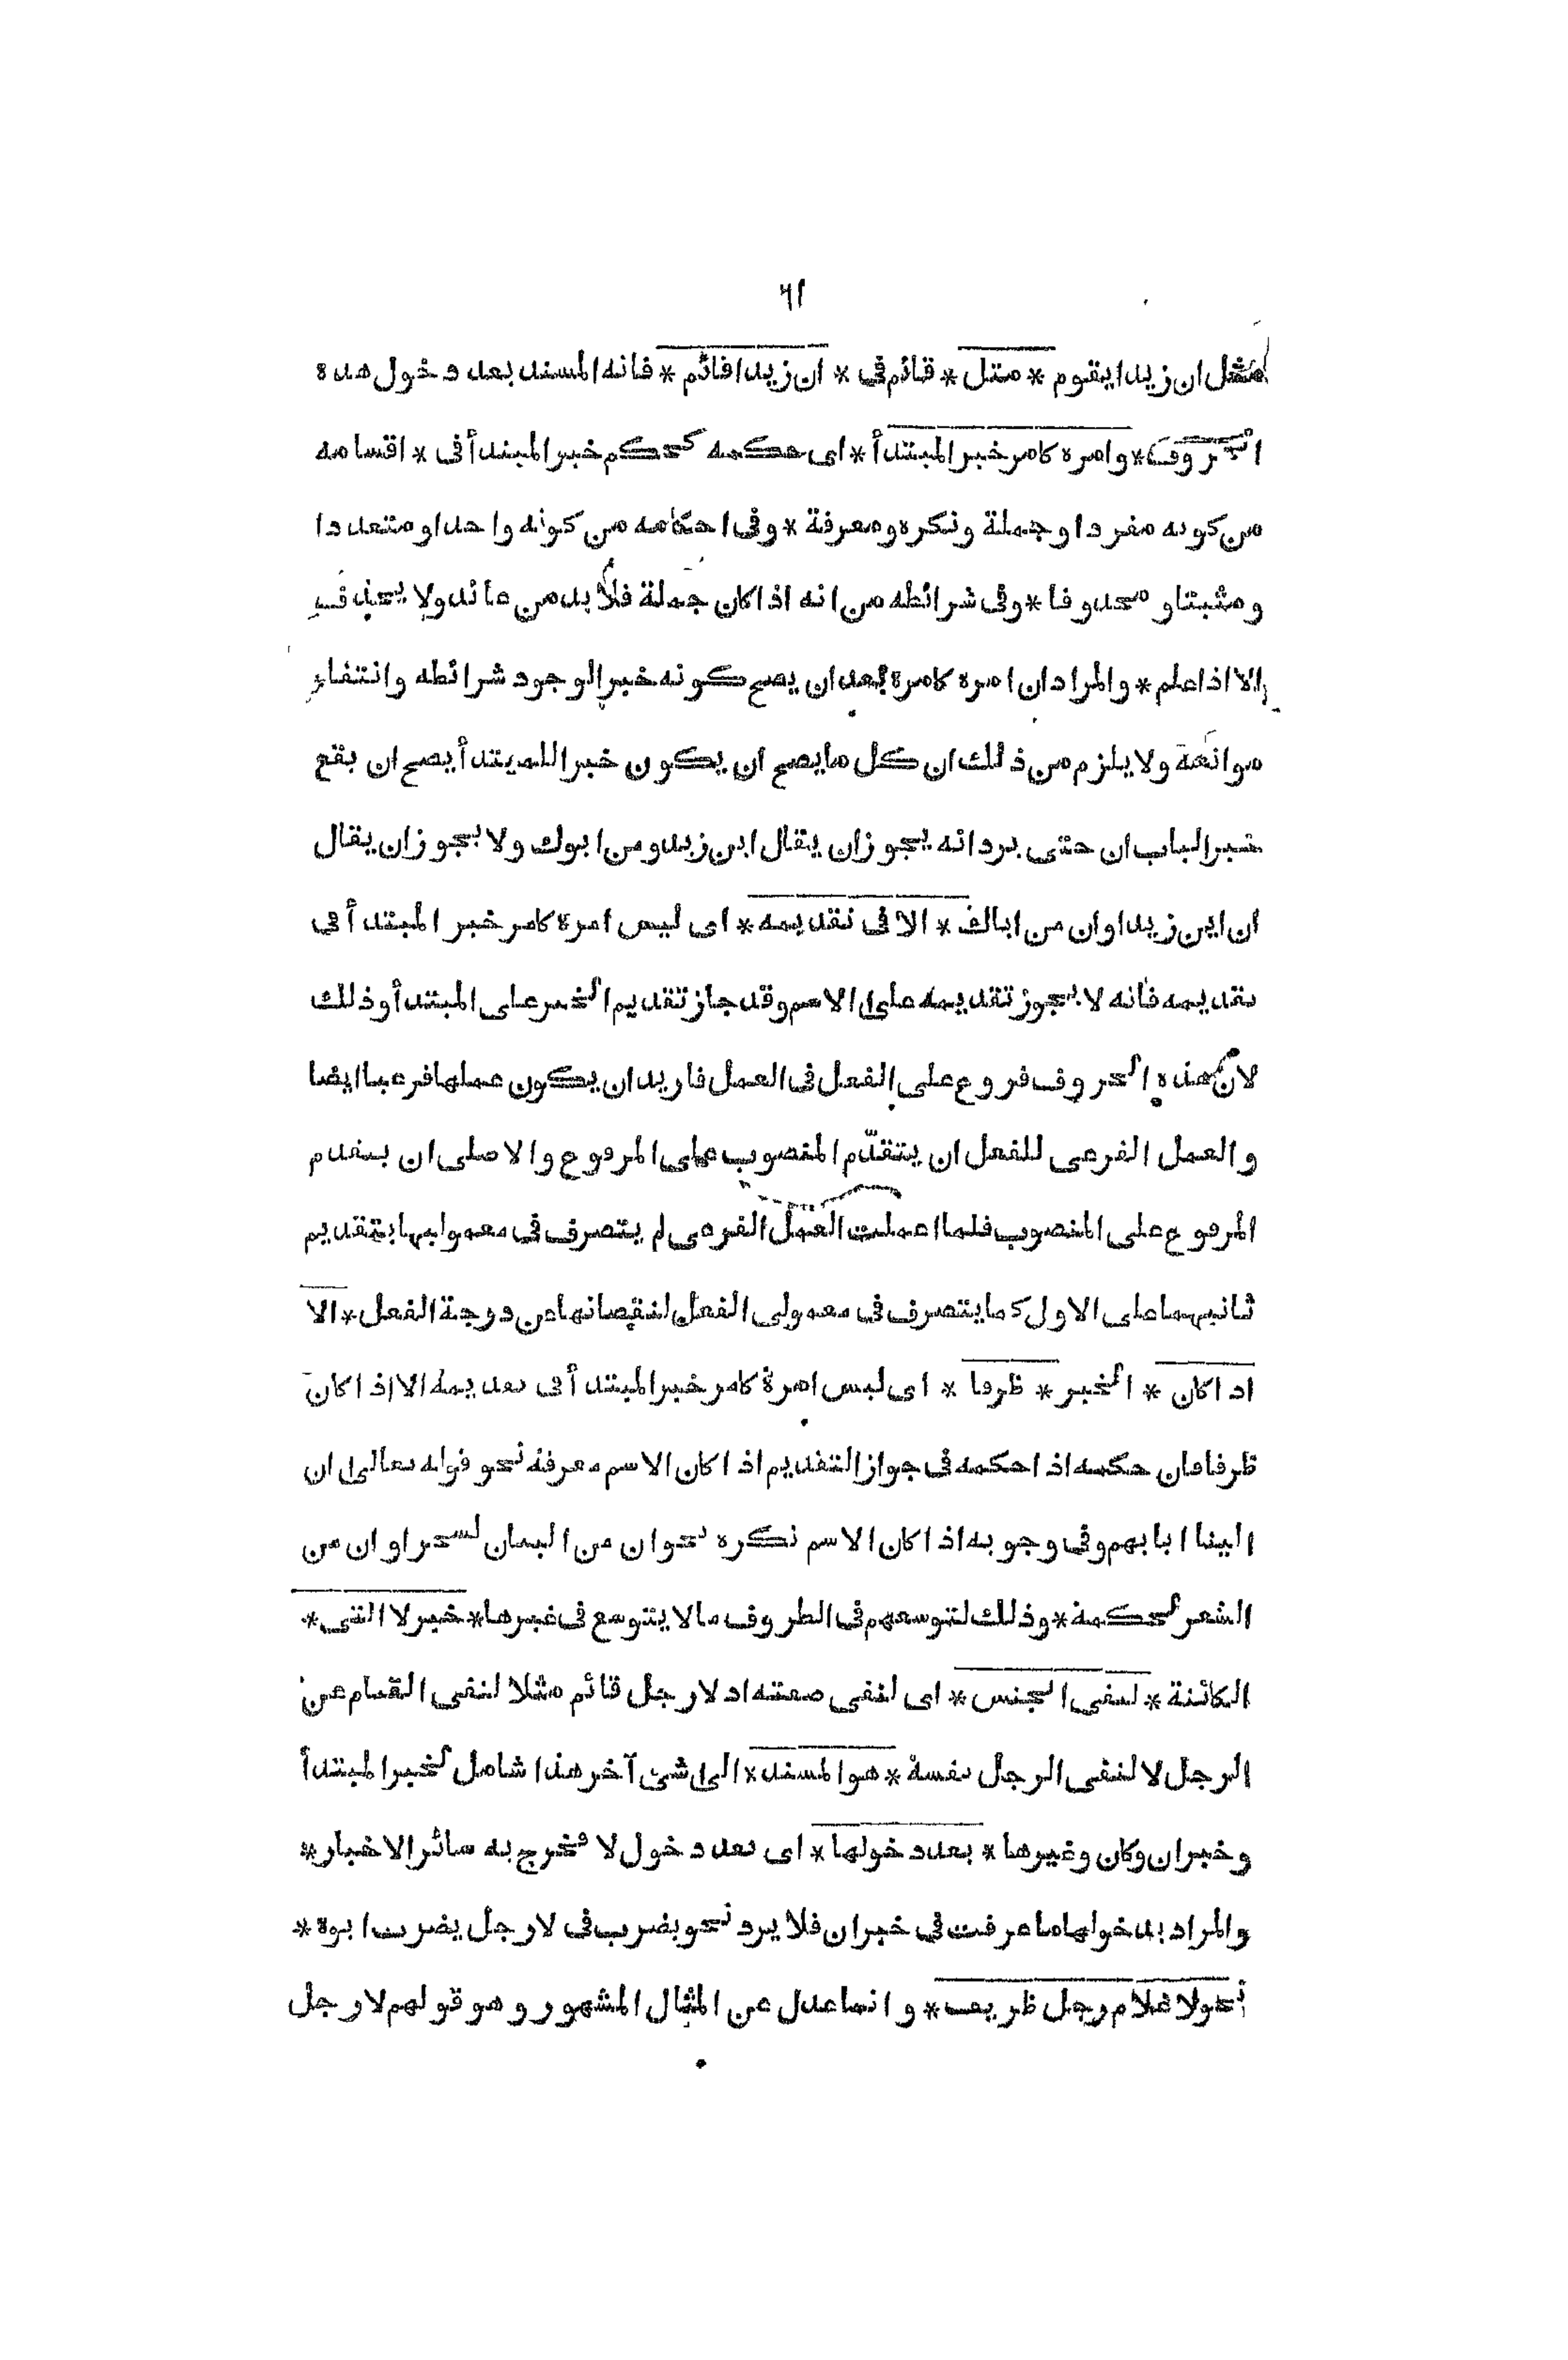 ٦١
مثل ان زيدا يقوم * مثل * قائم فى * ان زيدا قائم * فانه المسند بعد دخول هذه
الحروف * وامره كامر خبر المبتدأ * اى حكمه كحكم خبر المبتدأ فى * اقسامه
من كونه مفردا وجملة ونكرة ومعرفة * وفى احكامه من كونه واحدا ومتعددا
ومثبتا ومحذوفا * وفى شرائطه من انه اذا كان جملة فلا بد من عائد ولا يحذف
الا اذا علم * والمراد ان امره كامره بعد ان يصح كونه خبرا لوجود شرائطه وانتفاء
موانعه ولا يلزم من ذلك ان كل ما يصح ان يكون خبرا للمبتدأ يصح ان يقع
خبر الباب ان حتى يرد انه يجوز ان يقال اين زيد ومن ابوك ولا يجوز ان يقال
ان اين زيدا وان من اباك * الا فى تقديمه * اى ليس امره كامر خبر المبتدأ فى
تقديمه فانه لا يجوز تقديمه على الاسم وقد جاز تقديم الخبر على المبتدأ وذلك
لان هذه الحروف فروع على الفعل فى العمل فاريد ان يكون عملها فرعيا ايضا
والعمل الفرعى للفعل ان يتقدّم المنصوب على المرفوع والاصلى ان يتقدم
المرفوع على المنصوب فلما اعملت العمل الفرعى لم يتصرف فى معموليها بتقديم
ثانيهما على الاول كما يتصرف فى معمولى الفعل لنقصانها عن درجة الفعل * الا
اذا كان * الخبر * ظرفا * اى ليس امره كامر خبر المبتدأ فى تقديمه الا اذا كان
ظرفا فان حكمه اذا حكمه فى جواز التقديم اذا كان الاسم معرفة نحو قوله تعالى ان
الينا ايابهم وفى وجوبه اذا كان الاسم نكرة نحو ان من البيان لسحرا وان من
الشعر لحكمة * وذلك لتوسعهم فى الظروف ما لا يتوسع فى غيرها * خبر لا التى *
الكائنة * لنفى الجنس * اى لنفى صفته اذ لا رجل قائم مثلا لنفى القيام عن
الرجل لا لنفى الرجل نفسه * هو المسند * الى شئ آخر هذا شامل لخبر المبتدأ
وخبر ان وكان وغيرها * بعد دخولها * اى بعد دخول لا فخرج به سائر الاخبار *
والمراد بدخولها ما عرفت فى خبر ان فلا يرد نحو يضرب فى لا رجل يضرب ابوه *
نحو لا غلام رجل ظريف * وانما عدل عن المثال المشهور وهو قولهم لا رجل